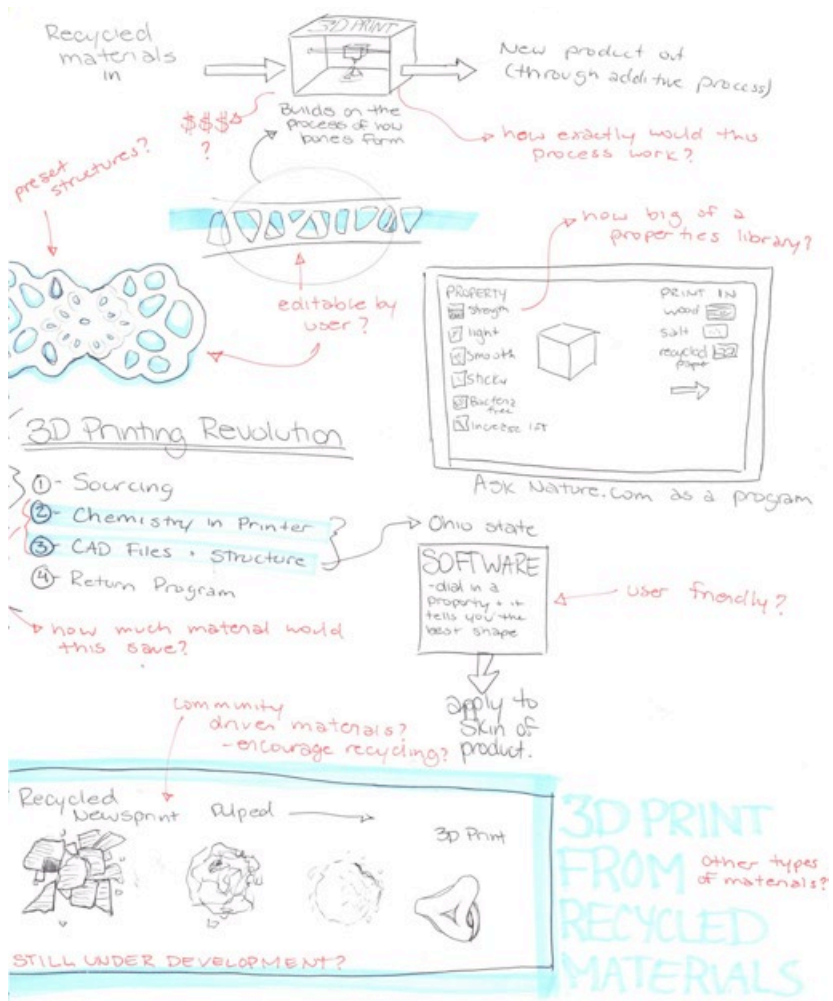 Recycled
materials
in
3D PRINT
New product out
(through additive process)
Builds on the
process of how
bones form
$$$
?
how exactly would this
process work?
preset
structures?
how big of a
properties library?
editable by
user?
PROPERTY
light
Smooth
Sticky
Bacteria
free
PRINT IN
wood
salt
recycled
paper
3D Printing Revolution
① - Sourcing
② - Chemistry in Printer
③ - CAD Files + Structure
④ - Return Program
Ask Nature.com as a program
Ohio state
SOFTWARE
-dial in a
property + it
tells you the
best shape
user friendly?
how much material would
this save?
apply to
skin of
product.
community
driven materials?
-encourage recycling?
Recycled
Newsprint
Pulped
3D Print
STILL UNDER DEVELOPMENT?
3D PRINT
FROM
RECYCLED
MATERIALS
other types
of materials?